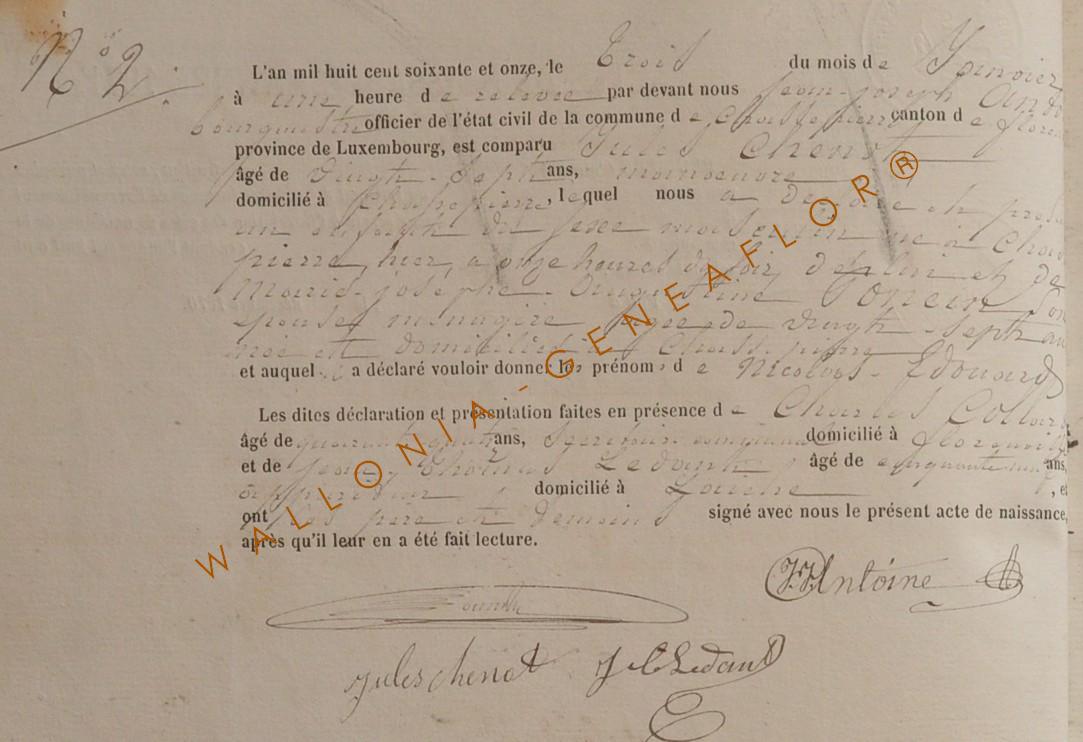 N° 2.
L'an mil huit cent soixante et onze, le Trois du mois de Janvier
à une heure de relevée par devant nous Jean-Joseph Ant
bourgmestre officier de l'état civil de la commune de Chassepierre canton de Floren
province de Luxembourg, est comparu Jules Chenot
âgé de vingt-sept ans, manoeuvre
domicilié à Chassepierre, lequel nous a déclaré et présen
un enfant du sexe masculin né à Chass
pierre, hier, à onze heures du soir, de lui et de
Marie-josephe-Augustine Poncin Son
épouse, ménagère, âgée de vingt-sept an
née et domiciliée à Chassepierre
et auquel il a déclaré vouloir donner les prénoms de Nicolas-Edouard
Les dites déclaration et présentation faites en présence de Charles Collard
âgé de quarante quatre ans, Secrétaire communal domicilié à Florenville
et de Jean-Ledant, âgé de cinquante ans,
domicilié à Laiche, et
ont les père et témoins signé avec nous le présent acte de naissance,
après qu'il leur en a été fait lecture.
JJAntoine
Jules chenot
Ledant
WALLONIA-GENEAFLOR®